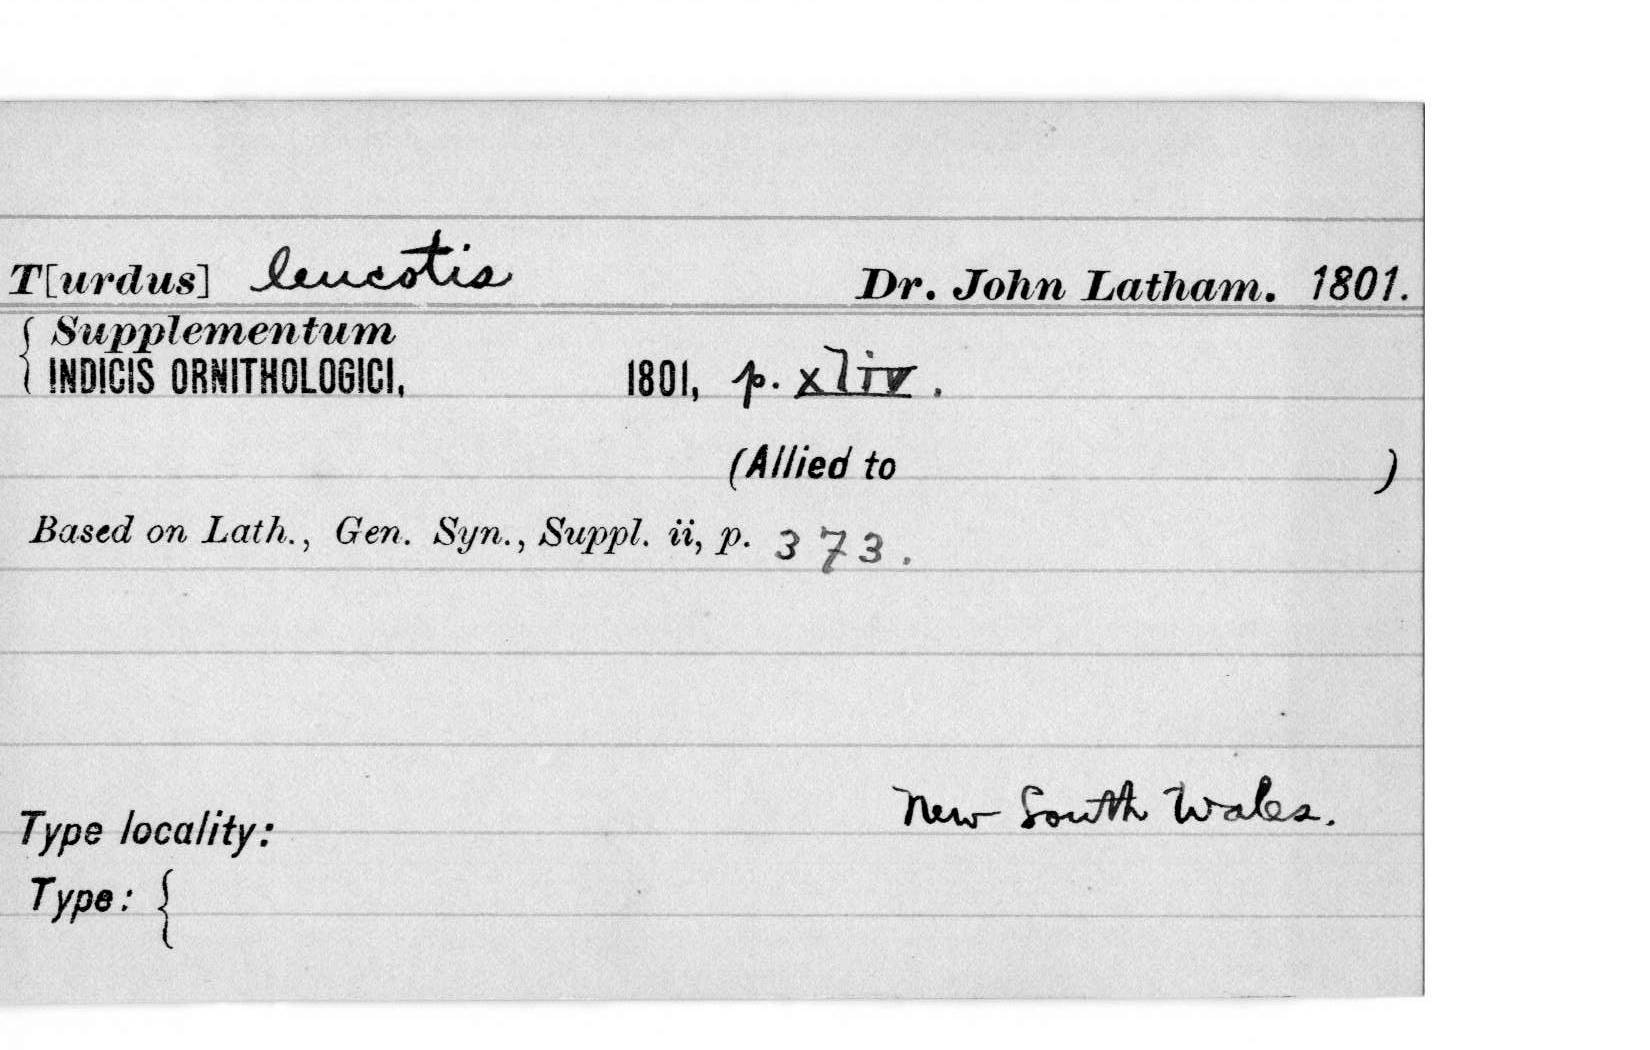 T[urdus] leucotis Dr. John Latham. 1801.
{ Supplementum
INDICIS ORNITHOLOGICI, 1801, p. xliv.
(Allied to )
Based on Lath., Gen. Syn., Suppl. ii, p. 373.
New South Wales.
Type locality:
Type: {